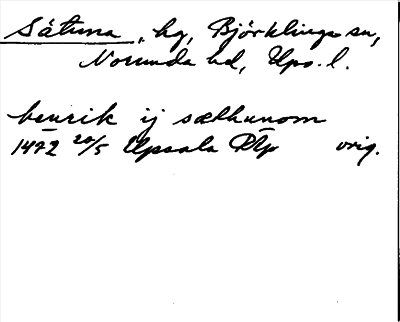 Såtuna, hg, Björklinge sn,
Norunda hd, Upps. l.
henrik ij sæthunom
1472 20/5 Uppsala RAp orig.